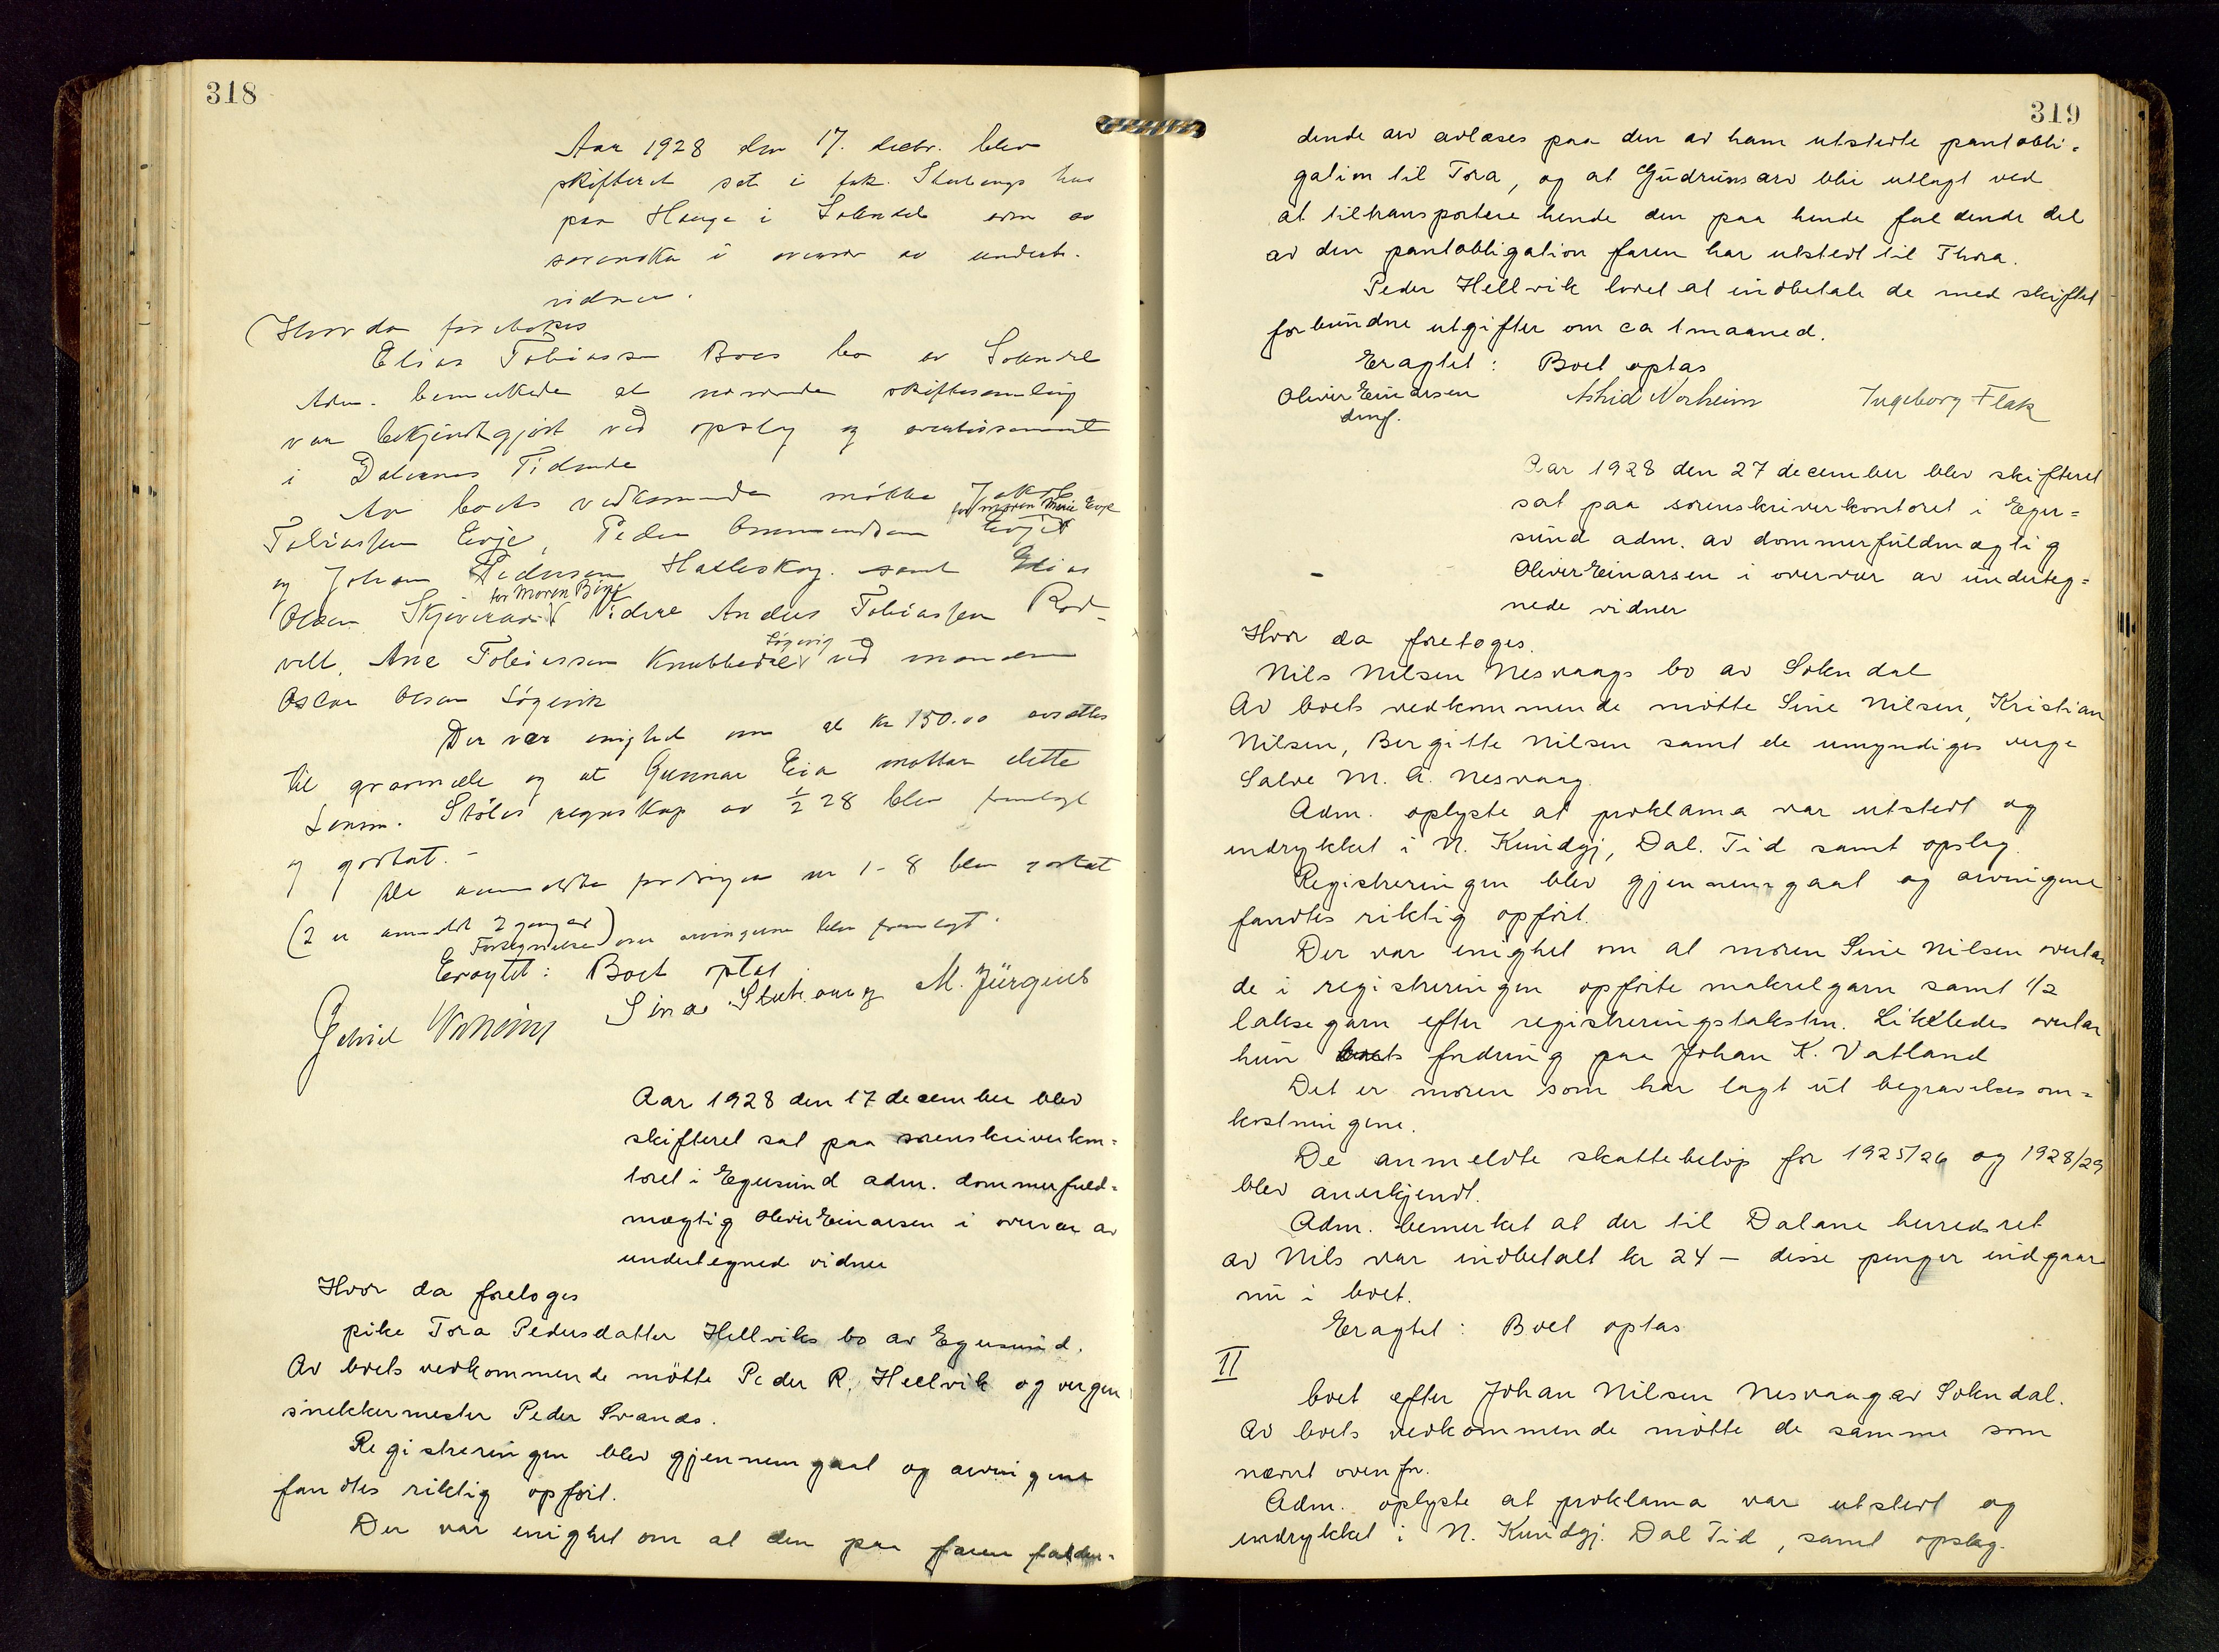 318
Aar 1928 den 17. decbr. blev
skifteret sat i fnk. Stubangs hus
paa Hauge i Sokndal adm av
sorenskr i overvær av undert.
vidner.
Hvor da foretokes
Elias Tobiassen Roes bo av Sokndal
Adm. bemerkede at nærværende skiftesamling
var bekjendtgjort ved opslag og avertissement
i Dalernes Tidende
Av boets vedkommende møtte Jakob
for moren Marie Evje
Tobiassen Evje, Peder Ommundsen Evje
og Johan Pedersen Halleskog. samt Elias
for Moren Bine
Olsen Skjeveraas Videre Andreas Tobiassen Rod-
Løgevig
vell, Ane Tobiassen Knubbedal ved manden
Oscar Olsen Løgevik
Der var enighed om at kr 150.00 avsættes
til gravmæle og at Gunnar Eia mottar dette
Lensm. Støles regnskap av 1/2 28 blev fremlagt
og godtat. -
De anmeldte fordringer nr 1-8 blev godtat
(2 er anmeldt 2 ganger)
Fortegnelse over arvingerne blev fremlagt.
Eragtet: Boet optas
Astrid Norheim Sina Stubhaug M. Jürgens
Aar 1928 den 17 december blev
skifteret sat paa sorenskriverkon=
toret i Egersund adm. dommerfuld=
mægtig Oliver Einarsen i overvær av
undertegned vidner
Hvor da foretoges
pike Tora Pedersdatter Hellviks bo av Egersund.
Av boets vedkommende møtte Peder R. Hellvik og vergen
snekkermester Peder Svanes.
Registreringen blev gjennemgaat og arvingene
fandtes riktig opført.
Der var enighet om at den paa faren falden=
319
dende arv avlæses paa den av ham utstedte pantobli=
gation til Tora, og at Gudruns arv blir utlagt ved
at tiltransportere hende den paa hende faldende del
av den pantobligation faren har utstedt til Thora.
Peder Hellvik lovet at indbetale de med skiftet
forbundne utgifter om ca 1 maaned.
Eragtet: Boet optas
Oliver Einarsen Astrid Norheim Ingeborg Flak
dmf.
Aar 1928 den 27 december blev skifteret
sat paa sorenskriverkontoret i Eger=
sund adm. av dommerfuldmægtig
Oliver Einarsen i overvær av underteg=
nede vidner
Hvor da foretoges.
Nils Nilsen Nesvaags bo av Sokndal
Av boets vedkommende møtte Sine Nilsen, Kristian
Nilsen, Bergitte Nilsen samt de umyndiges verge
Salve M. A. Nesvaag.
Adm. oplyste at proklama var utstedt og
indrykket i N. Kundgj, Dal. Tid samt opslag.
Registreringen blev gjennemgaat og arvingene
fandtes riktig opført.
Der var enighet om at moren Sine Nilsen overtar
de i registreringen opførte makrelgarn samt 1/2
laksegarn efter registreringstaksten. Likeledes overtar
hun boets fordring paa Johan K. Vatland
Det er moren som har lagt ut begravelsesom=
kostningene.
De anmeldte skattebeløp for 1925/26 og 1928/29
blev anerkjendt.
Adm. bemerket at der til Dalane herredsret
av Nils var indbetalt kr 24 - disse penger indgaar
nu i boet.
Eragtet: Boet optas
II
boet efter Johan Nilsen Nesvaag av Sokndal.
Av boets vedkommende møtte de samme som
nævnt ovenfor.
Adm. oplyste at proklama var utstedt og
indrykket i N. Kundgj. Dal Tid, samt opslag.